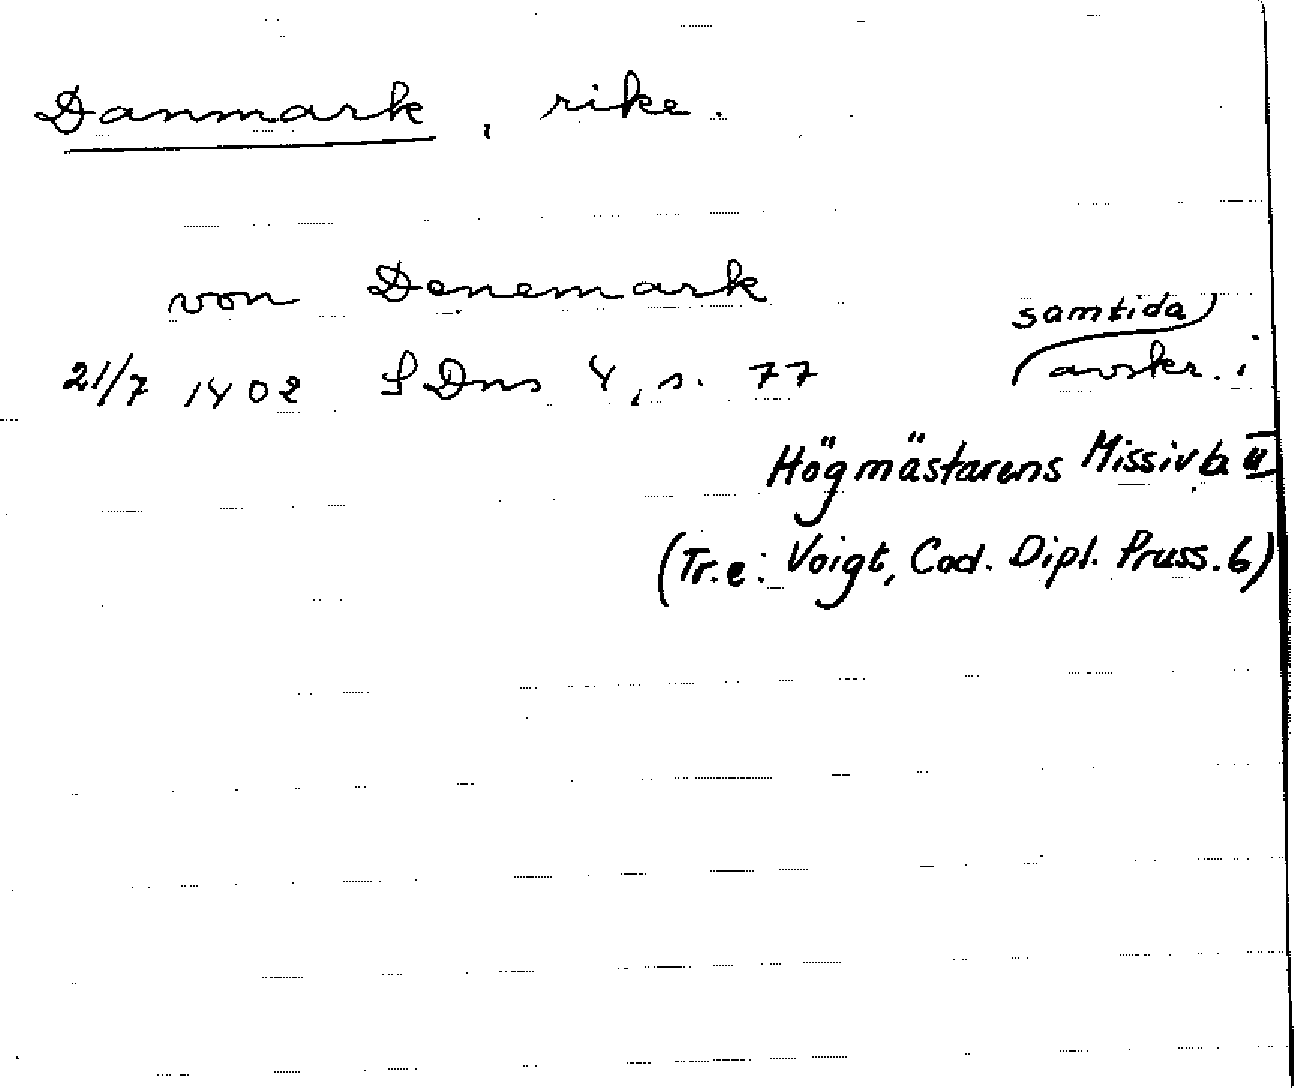 Danmark, rike.
von Denemark
samtida
21/7 1402 SDns 4, s. 77 avskr. i
Högmästarens Missivb. II
(Tr. e: Voigt, Cod. Dipl. Pruss. 6)